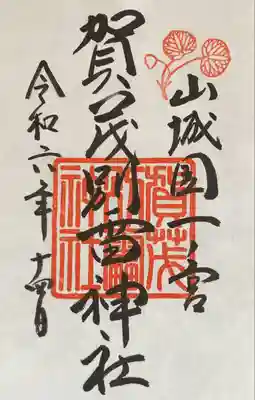 山城国一之宮
賀茂別雷神社
令和六年
賀茂別雷神社